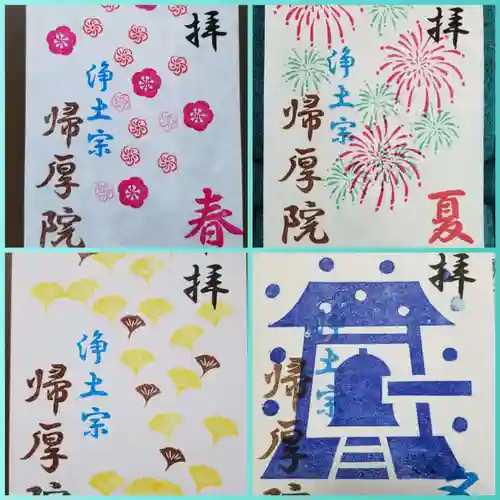 拝
浄土宗
帰厚院
春
拝
浄土宗
帰厚院
夏
拝
浄土宗
帰厚院
拝
浄土宗
帰厚院